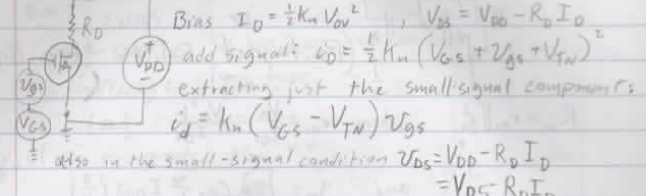 Bias I_D = ½ K_n V_OV² , V_DS = V_DD - R_D I_D
R_D
V_DD
add signal: i_D = ½ K_n (V_GS + v_gs + V_TN)²
v_gs
extracting just the small-signal component:
V_GS
i_d = K_n (V_GS - V_TN) v_gs
also in the small-signal condition v_DS = V_DD - R_D I_D
= V_DS - R_D I_D